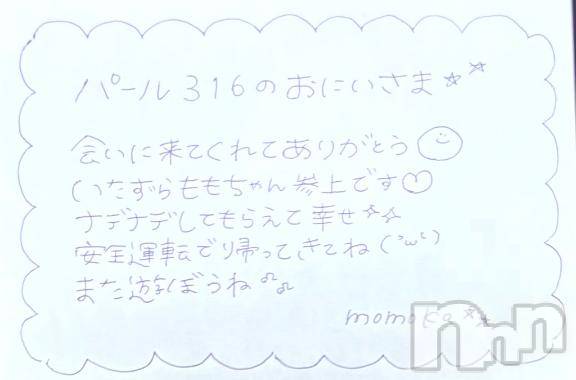 パール316のおにいさま☆☆
会いに来てくれてありがとう
いたずらももちゃん参上です♡
ナデナデしてもらえて幸せ☆☆
安全運転で帰ってきてね(´ω`)
また遊ぼうね♫
momoka☆☆
nnn